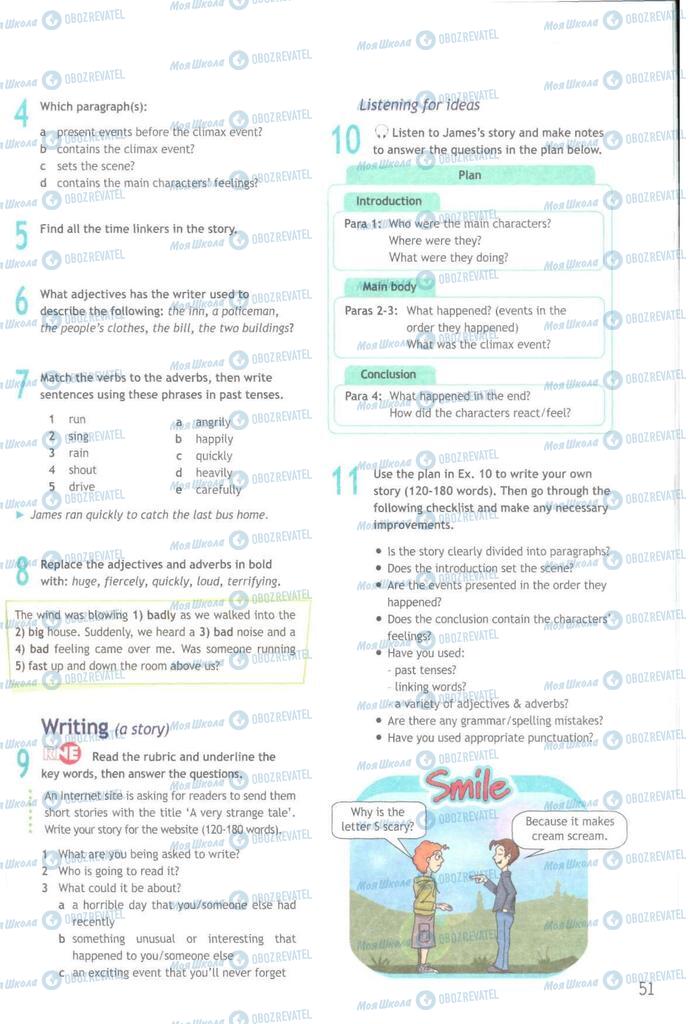 4 Which paragraph(s):
a present events before the climax event?
b contains the climax event?
c sets the scene?
d contains the main characters' feelings?
5 Find all the time linkers in the story.
6 What adjectives has the writer used to
describe the following: the inn, a policeman,
the people's clothes, the bill, the two buildings?
7 Match the verbs to the adverbs, then write
sentences using these phrases in past tenses.
1 run a angrily
2 sing b happily
3 rain c quickly
4 shout d heavily
5 drive e carefully
► James ran quickly to catch the last bus home.
8 Replace the adjectives and adverbs in bold
with: huge, fiercely, quickly, loud, terrifying.
The wind was blowing 1) badly as we walked into the
2) big house. Suddenly, we heard a 3) bad noise and a
4) bad feeling came over me. Was someone running
5) fast up and down the room above us?
Writing (a story)
9 RNE Read the rubric and underline the
key words, then answer the questions.
An Internet site is asking for readers to send them
short stories with the title 'A very strange tale'.
Write your story for the website (120-180 words).
1 What are you being asked to write?
2 Who is going to read it?
3 What could it be about?
a a horrible day that you/someone else had
recently
b something unusual or interesting that
happened to you/someone else
c an exciting event that you'll never forget
Listening for ideas
10 Listen to James's story and make notes
to answer the questions in the plan below.
Plan
Introduction
Para 1: Who were the main characters?
Where were they?
What were they doing?
Main body
Paras 2-3: What happened? (events in the
order they happened)
What was the climax event?
Conclusion
Para 4: What happened in the end?
How did the characters react/feel?
11 Use the plan in Ex. 10 to write your own
story (120-180 words). Then go through the
following checklist and make any necessary
improvements.
• Is the story clearly divided into paragraphs?
• Does the introduction set the scene?
• Are the events presented in the order they
happened?
• Does the conclusion contain the characters'
feelings?
• Have you used:
- past tenses?
- linking words?
- a variety of adjectives & adverbs?
• Are there any grammar/spelling mistakes?
• Have you used appropriate punctuation?
Smile
Why is the
letter S scary?
Because it makes
cream scream.
51
МОЯ ШКОЛА OBOZREVATEL